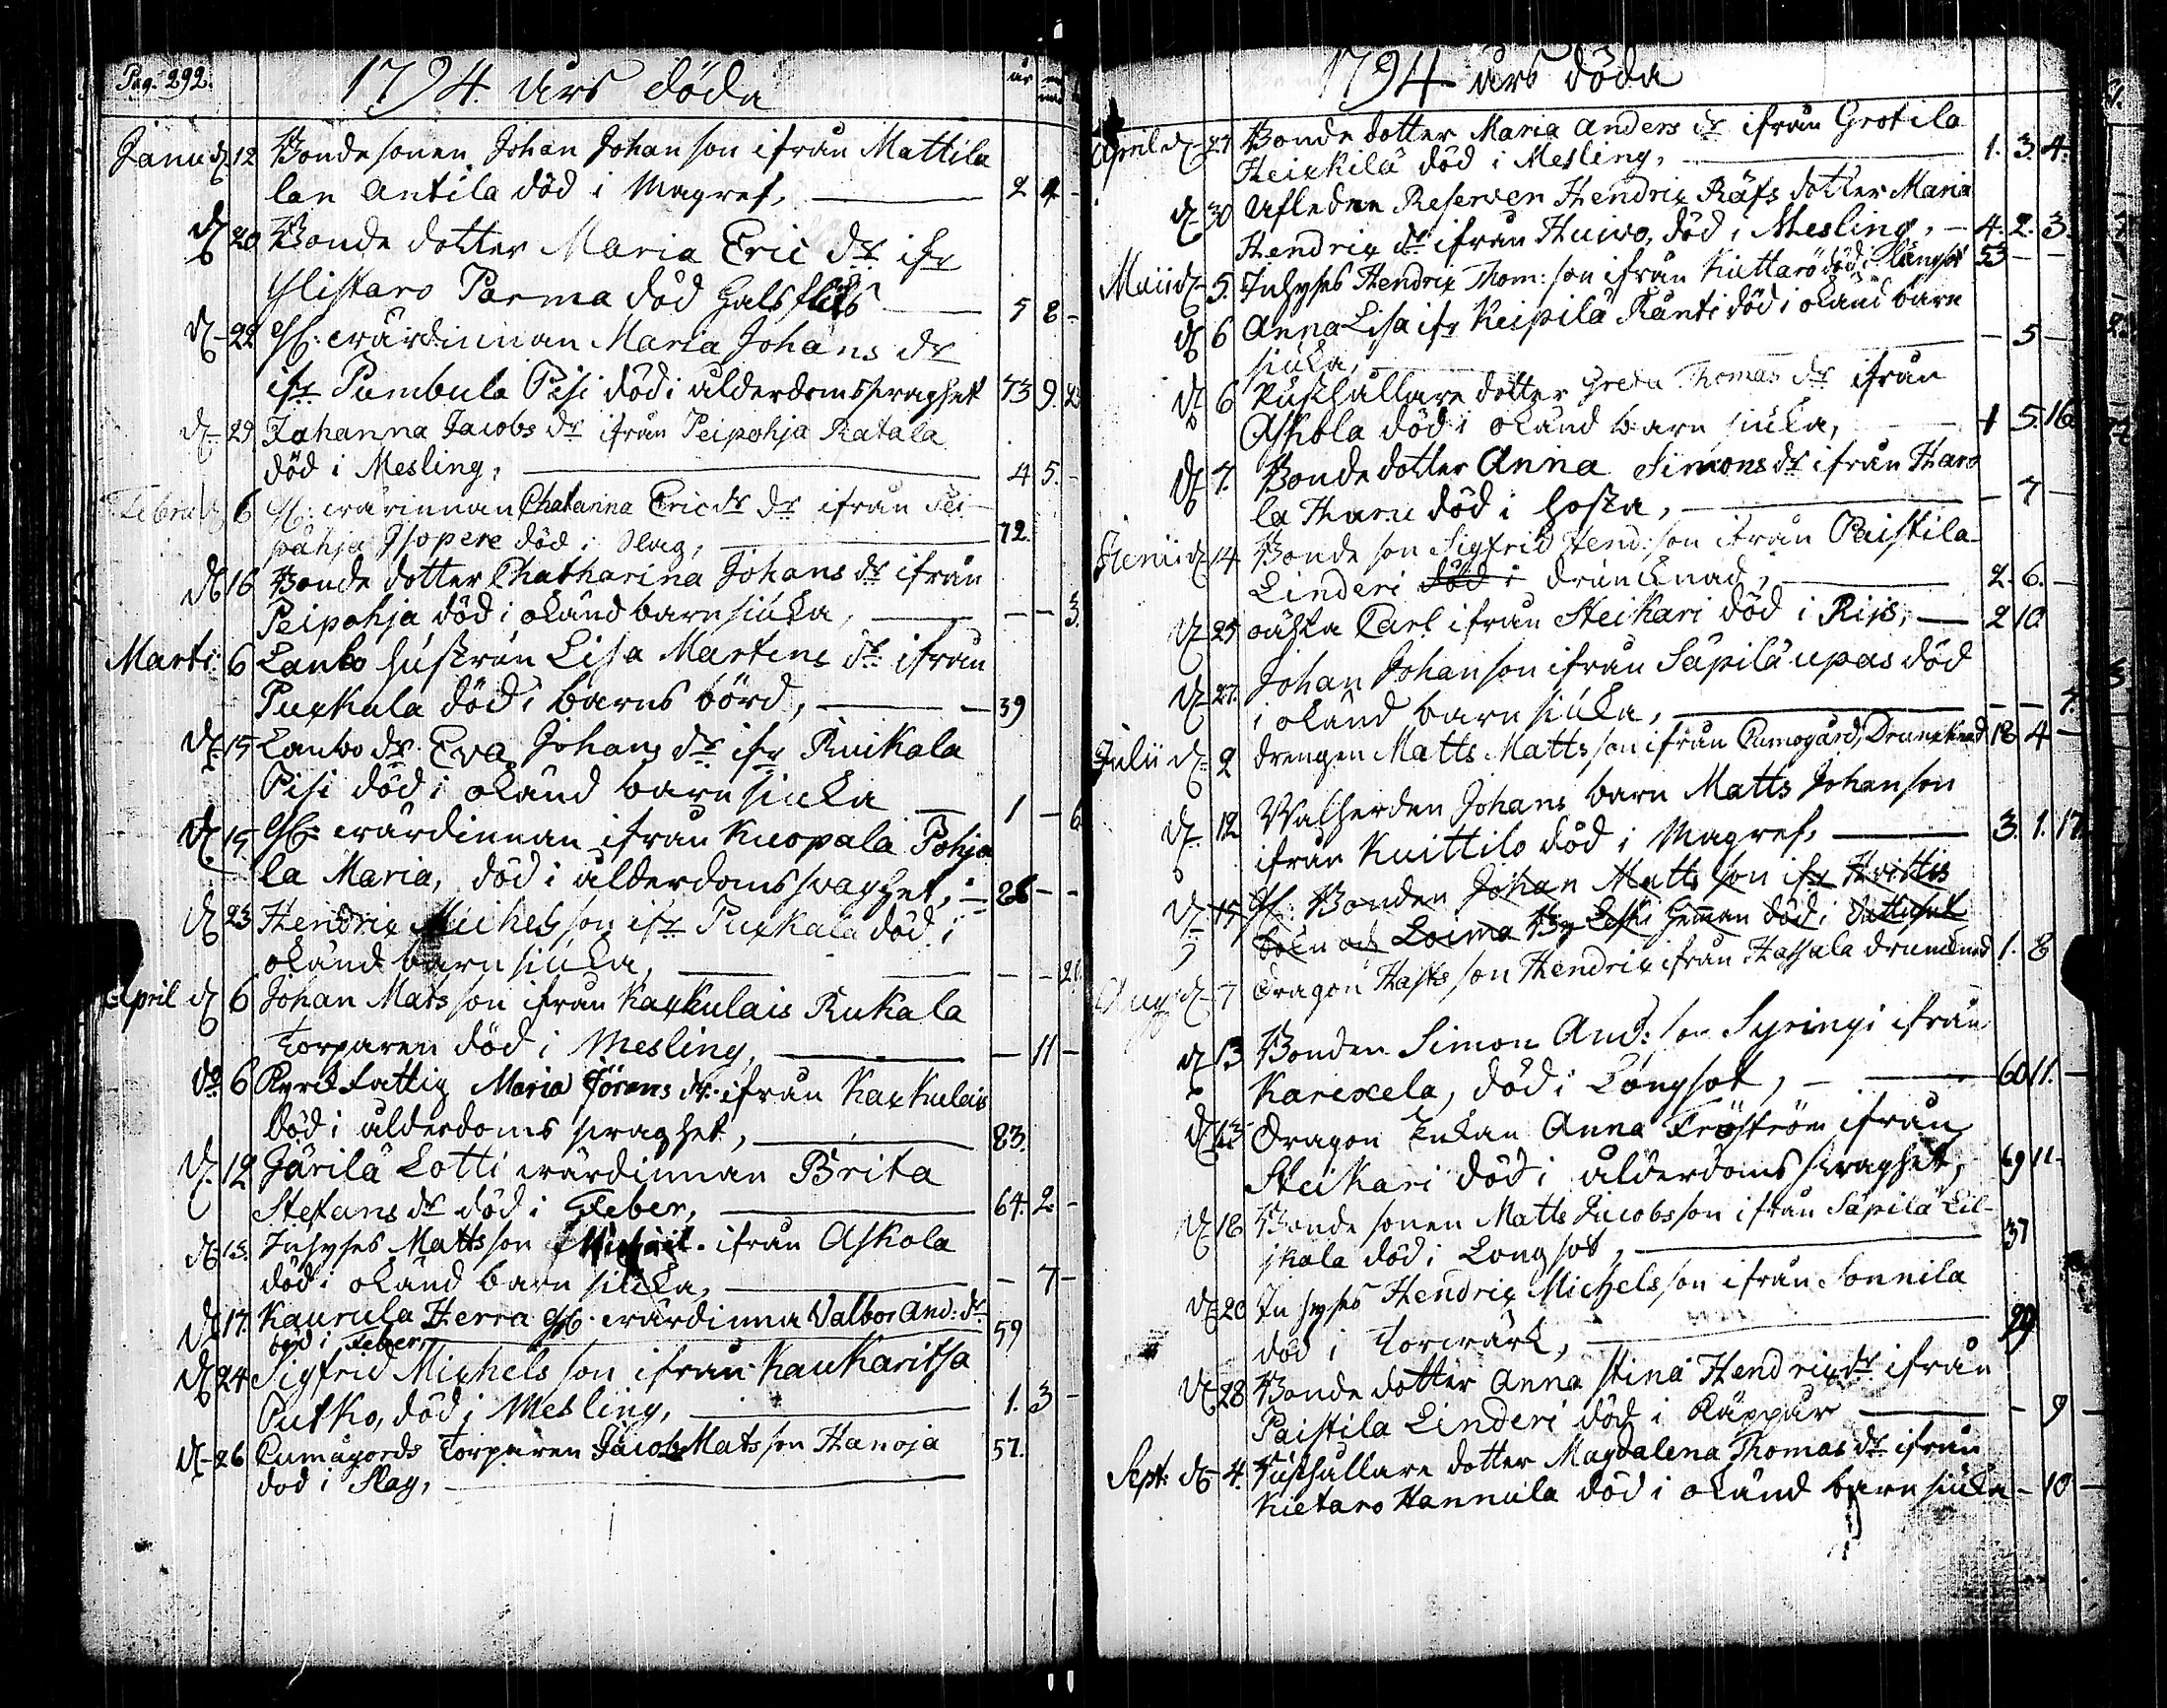 Pag. 292.
1794 års döda
år
Janu d. 12 Bondesonen Johan Johanson ifrån Mattila
lan Antila död i Magref, 2 4 -
d 20 Bonde dotter Maria Eric dr ifr
Ylistaro Parma död Halsfluss 5 8 -
d. 22 Gl: wärdinnan Maria Johans dr
ifr Pumbula Pisi död i ålderdomsswaghet 73 9.
d. 29. Johanna Jacobs dr ifrån Peipohja Ratala
död i Mesling, 4 5. -
Febru d 6 Gl: wärinnan Chatarina Eric dr dr ifrån Pei-
pohja Isopere död i Slag, 72.
d 16 Bonde dotter Chatharina Johans dr ifrån
Peipohja död i okänd barnsiuka, - - 3.
Marti: 6 Lanbo hustrun Lisa Martens dr ifrån
Puxkula död i barns börd, 39
d. 15 Lanbo dr Eva Johans dr ifr Ruikala
Pisi död i okänd barn siuka 1 - 6
d 15. Gl: wärdinnan ifrån Kuopala Pohja
la Maria, död i ålderdoms swaghet, 86 - -
d 23 Hendrix Michels son ifr Puxkala död i
okänd barn siuka, - - 21.
April d 6 Johan Mats son ifrån Kaxkulais Rukala
Torparen död i Mesling, - 11 -
do 6 Kyrck fattig Maria Jörens dr. ifrån Kaxkulais
död i ålderdoms swaghet, 83.
d. 12 Järilä Lotti wärdinnan Brita
Stefans dr död i Feber, 64. 2. -
d 13. Inhyses Matts son ifrån Askola
död i okänd barn siuka, - 7 -
d 17. Kaurula Herra Gl. wärdinna Valbor And: dr
död i Feber, 59
d 24 Sigfrid Michels son ifrån Kaukaritsa
Putko, död i Mesling, 1. 3 -
d - 26 Cumågords Torparen Jacob Mats son Hanoja 57.
död i Slag,
1794 års döda
April d. 27 Bonde dotter Maria Anders dr ifrån Grotila
Heixkilä död i Mesling, 1. 3. 4.
d. 30 Afledne Reserven Hendrix Räfs dotter Maria
Hendrix dr ifrån Huiwo, död i Mesling, - 4. 2. 3.
Maii d. 5. Inhyses Hendrix Thom: son ifrån Kuttarö död i långsot 53 - -
d 6 Anna Lisa ifr Keipilä Ränti död i okänd barn
siuka, - 5 -
d 6 Rusthållare dotter Greta Thomas dr ifrån
Askola död i okänd barn siuka, 1 5. 16
d 7. Bonde dotter Anna Simons dr ifrån Haro
la Harn död i hosta, - 7 -
Junii d 14 Bonde son Sigfrid Hend: son ifrån Paistila
Linderi död i druncknad, 2. 6. -
d. 25 oächta Carl ifrån Steikari död i Riis, 2 10
d. 27. Johan Johanson ifrån Säpilä upas död
i okänd barn siuka, - - 7.
Julii d. 2 drengen Matts Matts son ifrån Cumogård, Drunknad 18 4 -
d. 12 Valherden Johans barn Matts Johanson
ifrån Kuittilo död i Magref, 3. 1. 17.
d. 15 Gl: Bonden Johan Matts son ifr Hvittis
Sokn och Loima By Leski Hemman död i
Aug. d. 7 Dragon Hasts son Hendrix ifrån Hassala druncknad 1. 8
d 13 Bonden Simon And: son Syringi ifrån
Karexela, död i Longsot, 60 11. -
d 13 Dragon Enkan Anna Fröström ifrån
Steikari död i ålderdoms swaghet, 69 11 -
d 18 Bonde sonen Matts Jacobs son ifrån Säpilä Lil-
jkala död i Longsot, 37
d 20 In hyses Hendrix Michels son ifrån Sonnila
död i Torwärk, 29
d 28 Bonde dotter Anna Stina Hendrix dr ifrån
Paistila Linderi död i Käppur - 9 -
Sept: d - 4. Rusthållare dotter Magdalena Thomas dr ifrån
Kietaro Hannula död i okänd barn siuka - 10 -